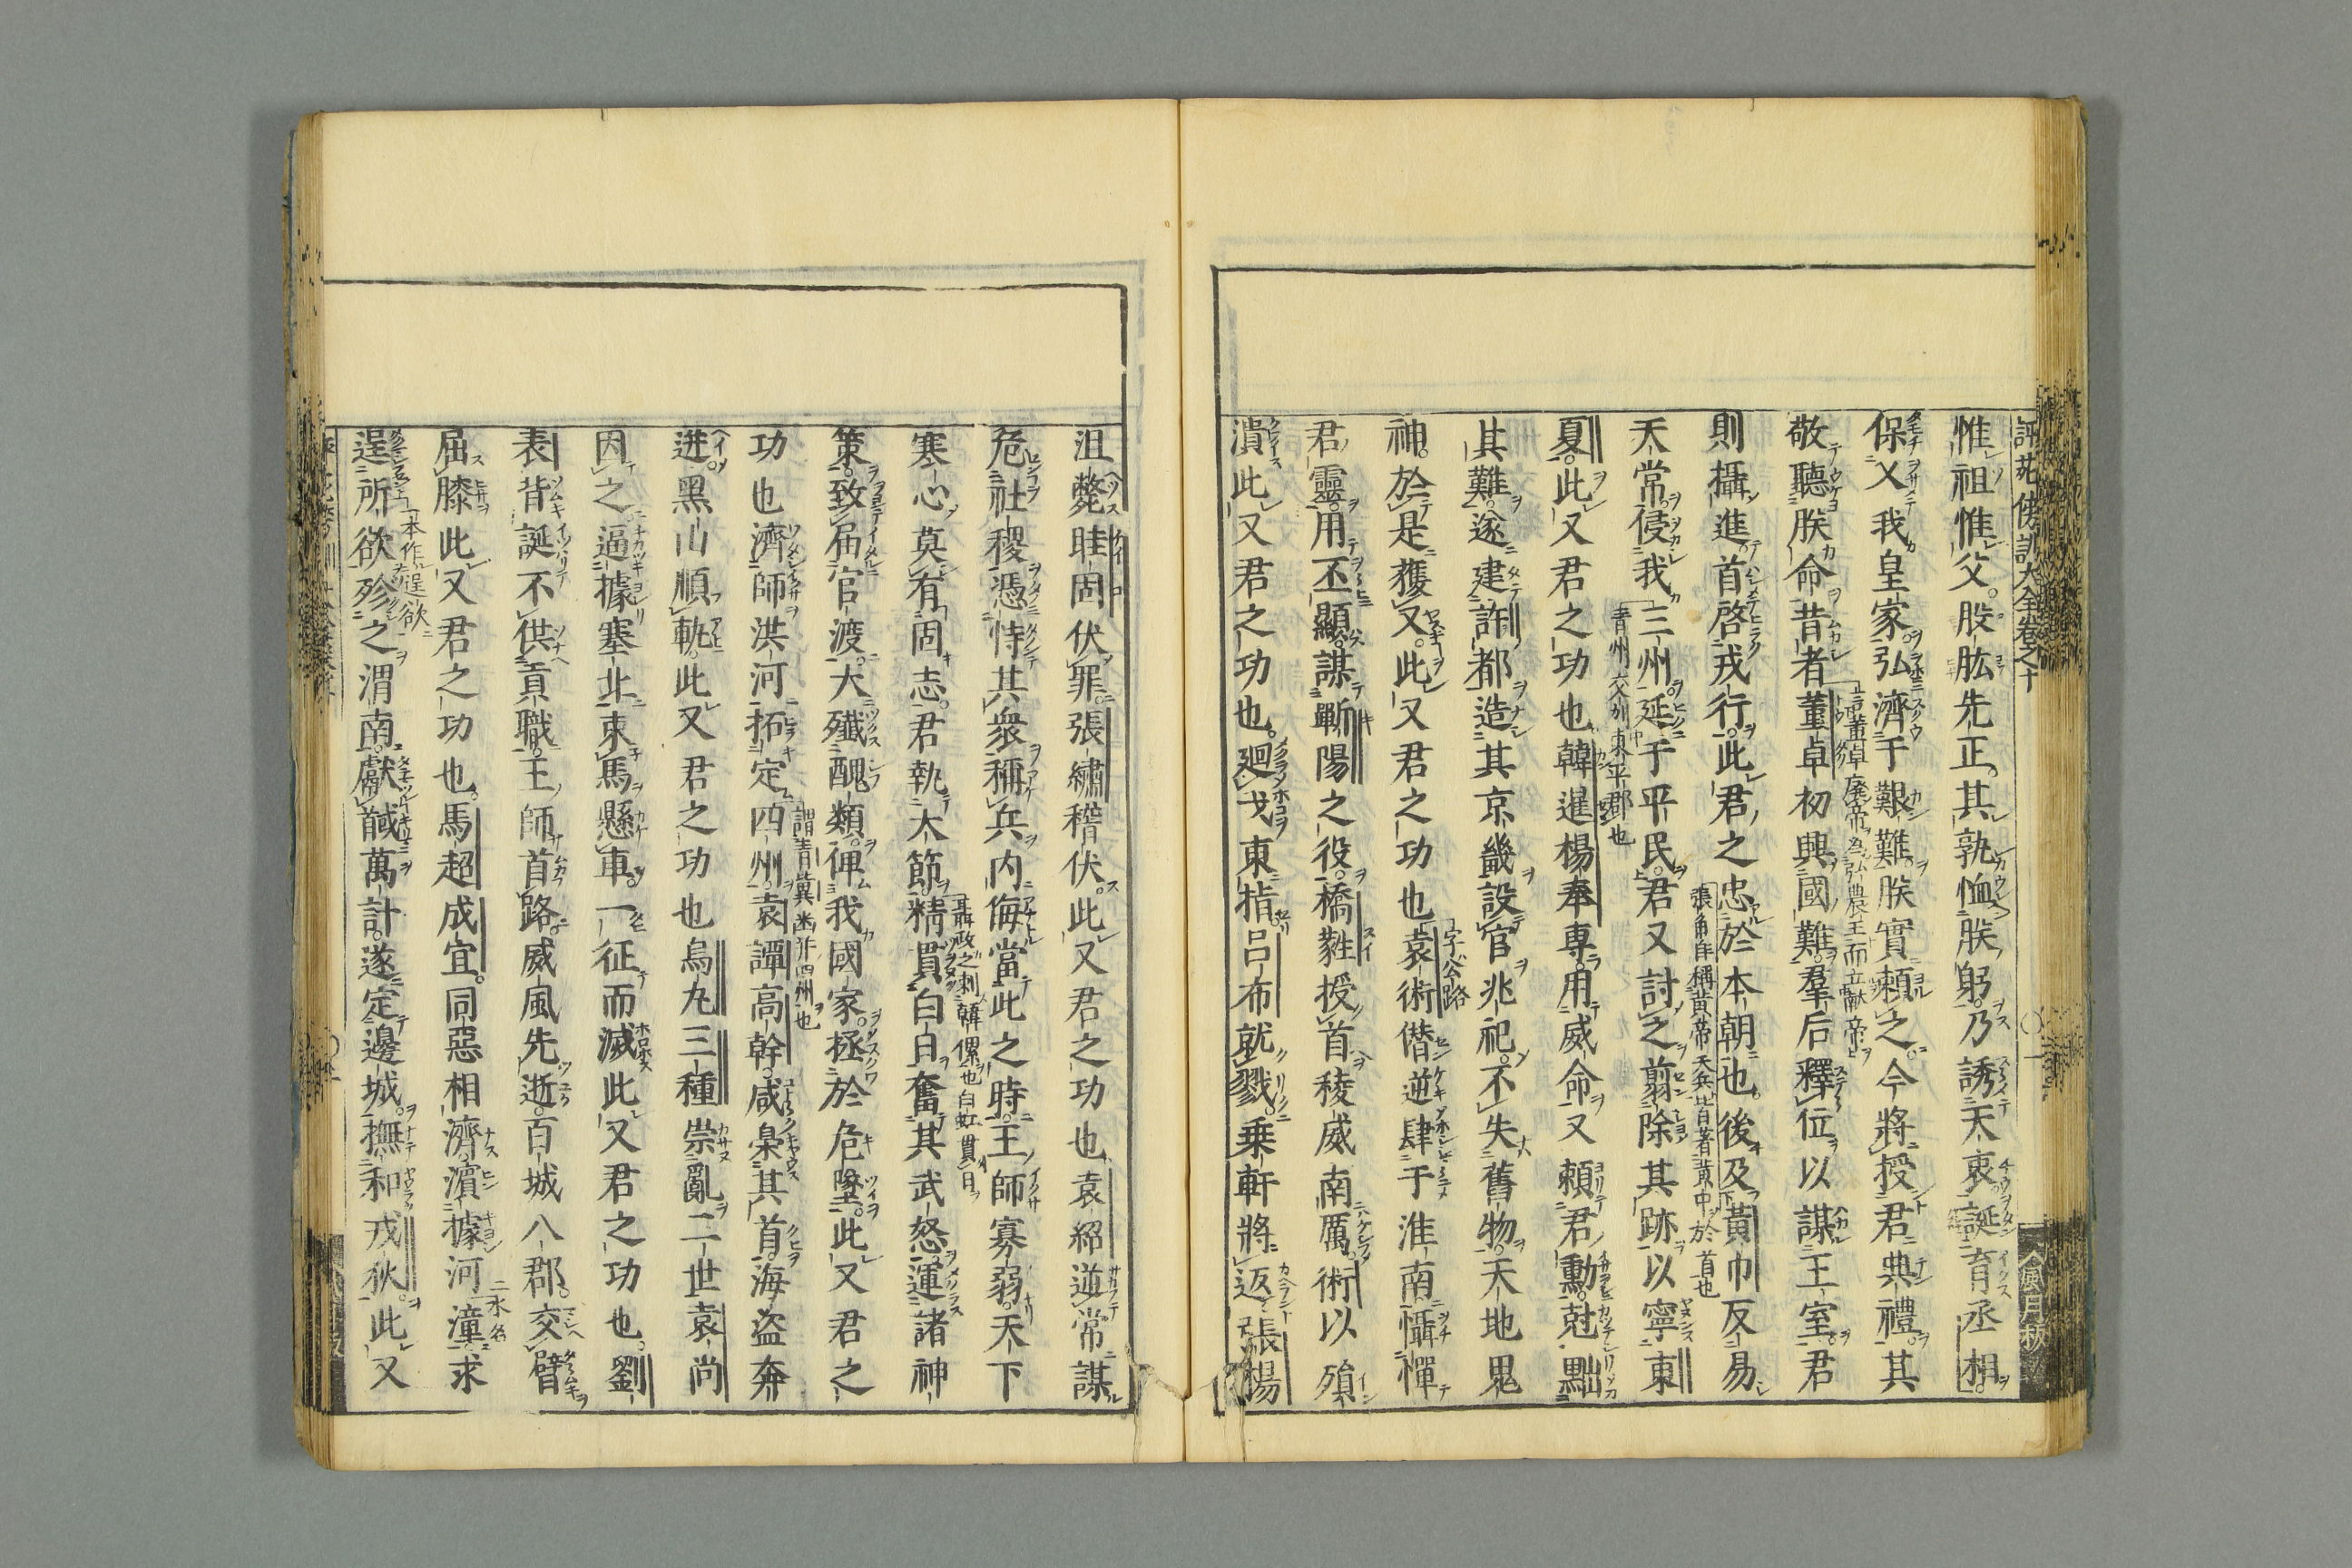 評苑傍訓大全卷之十
惟祖惟父。股肱先正。其孰恤朕躬。乃誘天衷。誕育丞相。
保乂我皇家。弘濟于艱難。朕實賴之。今將授君典禮。其
敬聽朕命。昔者董卓初興國難。羣后釋位以謀王室。君
言董卓廢帝為弘農王而立献帝
則攝進。首啓戎行。此君之忠於本朝也。後及黃巾反易
張角自稱黃帝天兵皆著黃巾於首也
天常侵我三州延于平民。君又討之。翦除其跡以寧東
青州交州東平郡也
夏。此又君之功也。韓暹楊奉專用威命又賴君勳。尅黜
其難。遂建許都造其京畿設官兆祀。不失舊物。天地鬼
神。於是獲乂。此又君之功也袁術僣逆肆于淮南懾憚
字公路
君靈。用丕顯謀。蘄陽之役。橋蕤授首稜威南厲。術以殞
潰此又君之功也。廻戈東指呂布就戮。乗軒將返張楊
沮斃眭固伏罪張繡稽伏。此又君之功也袁紹逆常謀
危社稷憑恃其衆稱兵内侮當此之時。王師寡弱。天下
塞心莫有固志。君執大節。精貫白日。奮其武怒。運諸神
聶政之刺韓傫也白虹貫日
策。致届官渡。大殲醜類。俾我國家。拯於危墜。此又君之
功也濟師洪河拓定四州。袁譚高幹。咸梟其首。海盗奔
謂青冀幽并四州也
迸。黑山順軌。此又君之功也烏丸三種崇亂二世袁尚
因之逼據塞北束馬懸車。一征而滅此又君之功也。劉
表背誕不供貢職。王師首路。威風先逝。百城八郡。交臂
屈膝此又君之功也。馬超成宜。同惡相濟。濵據河潼求
二水名
逞所欲殄之渭南。獻馘萬計。遂定邊城。撫和戎狄。此又
一本作逞欲